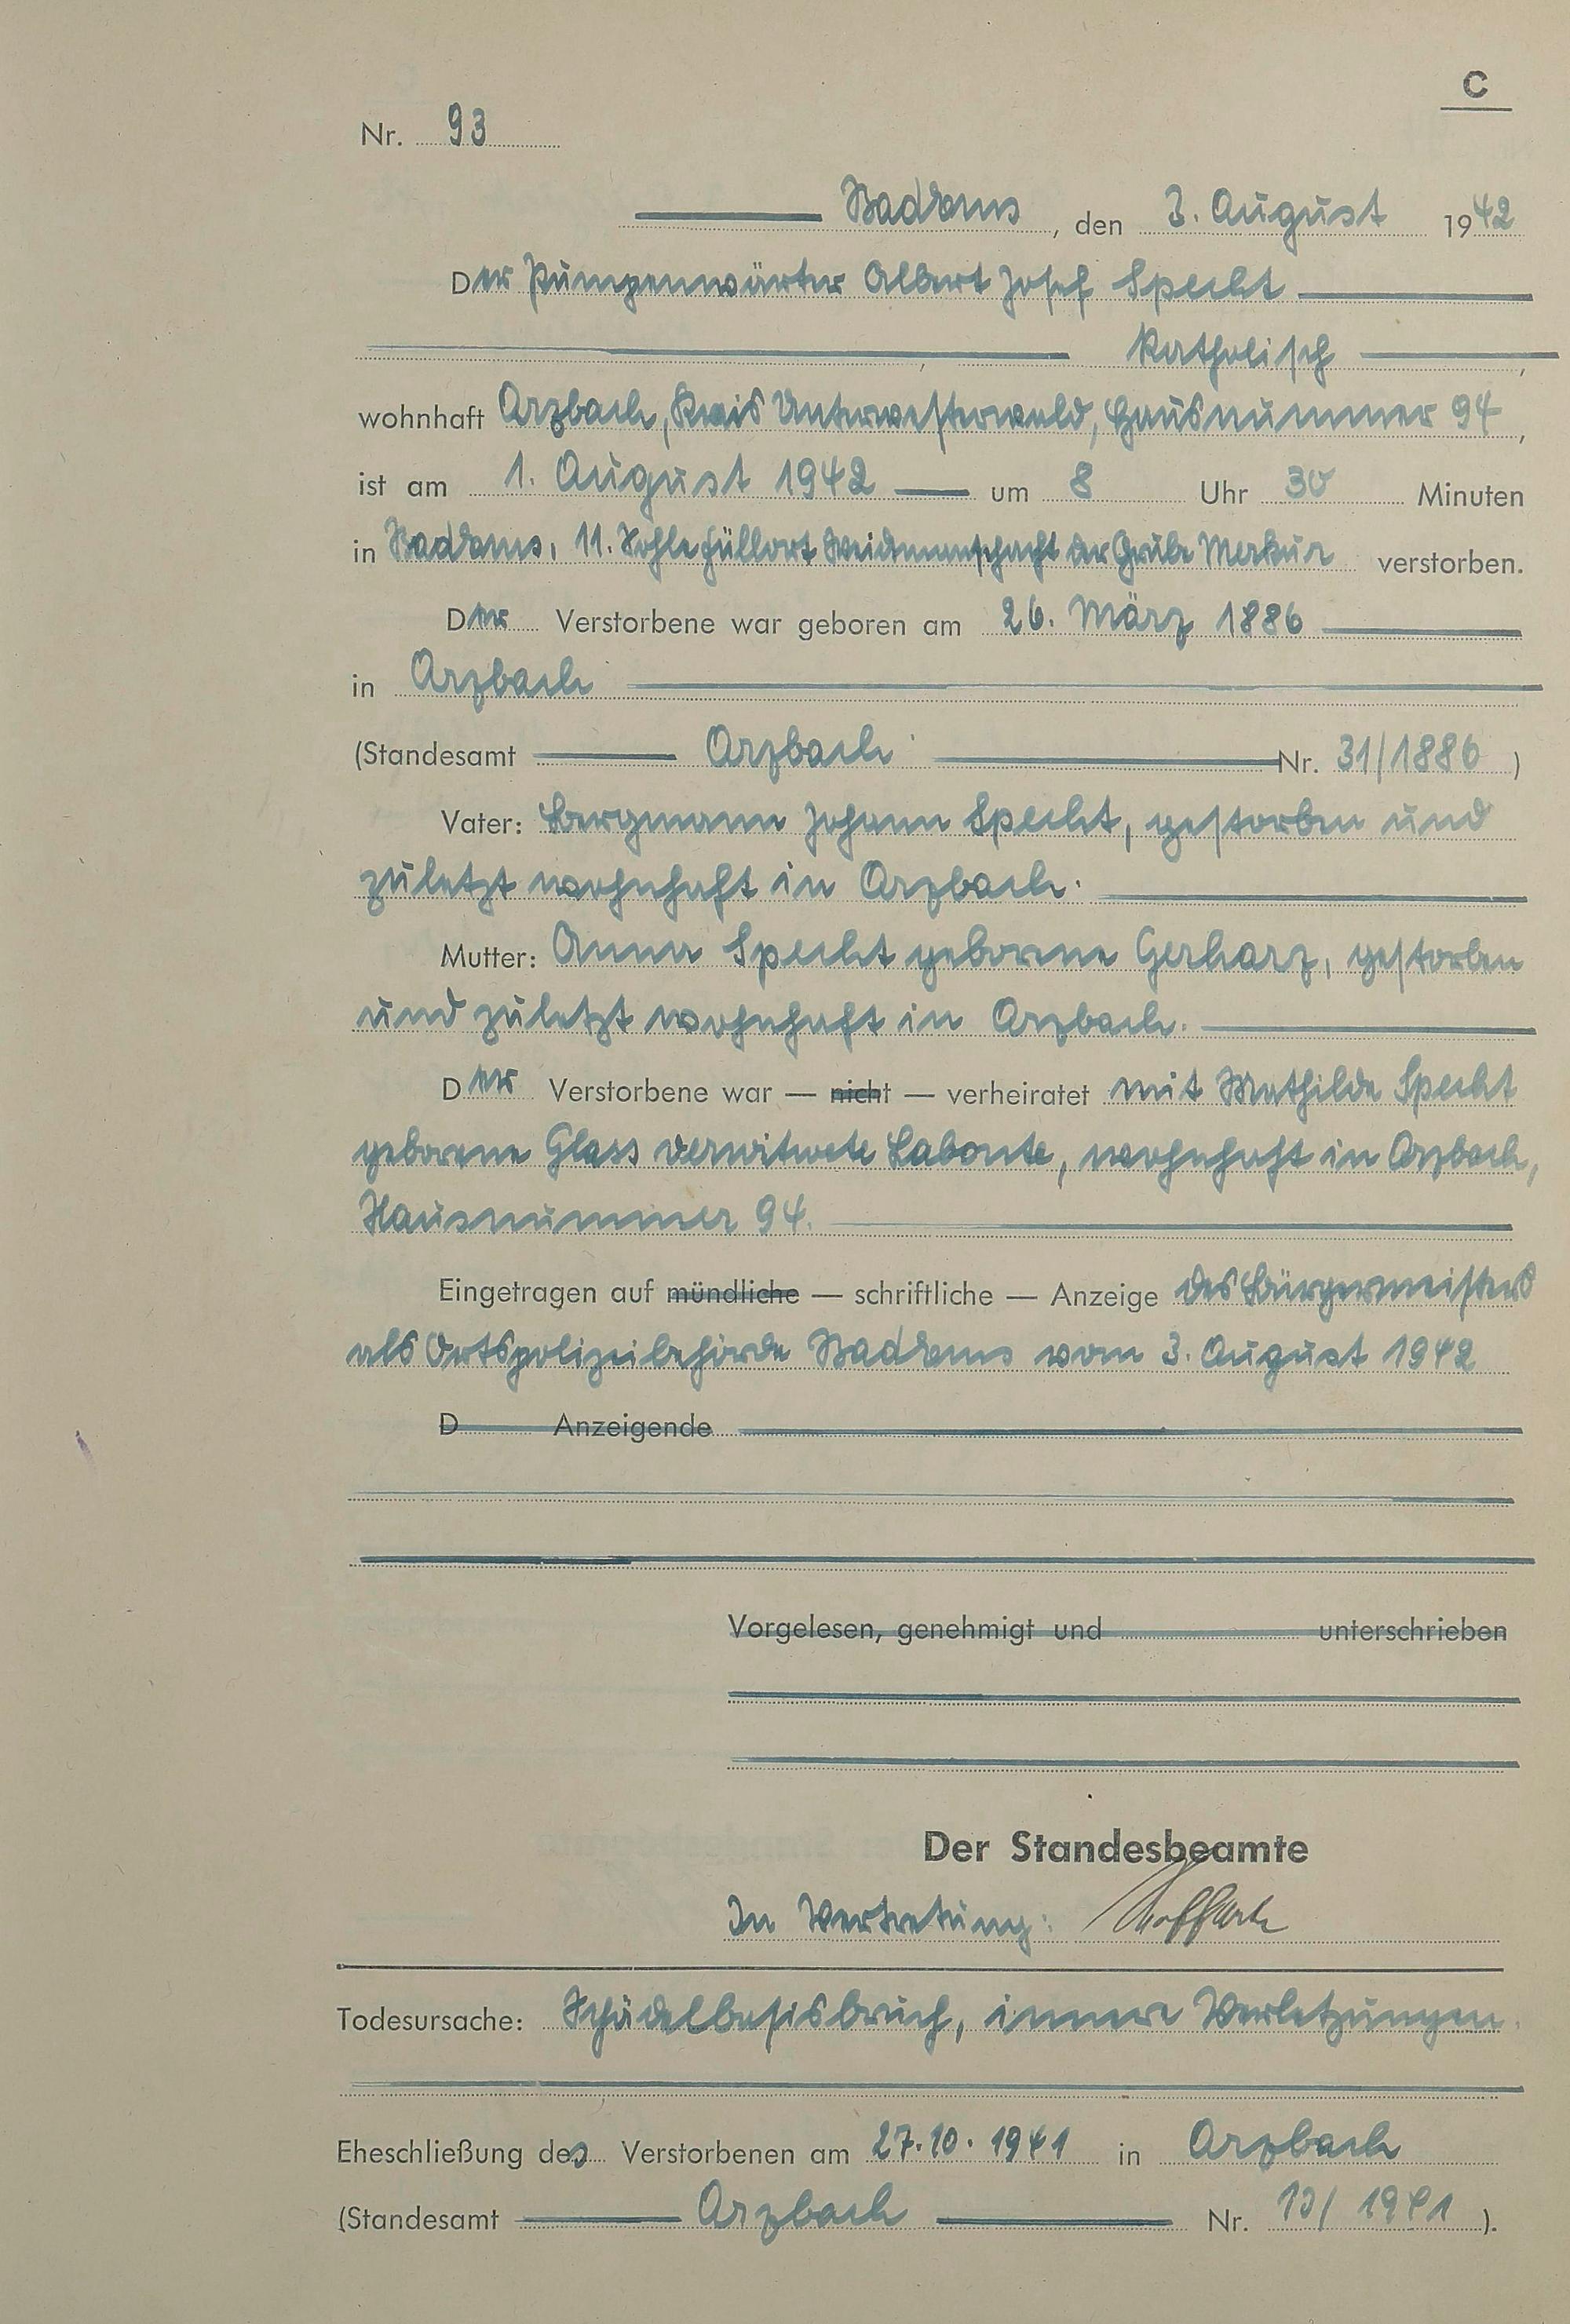 C
Nr. 93
Bad Ems, den 3. August 1942
Der Pumpenwärter Albert Josef Specht
katholisch,
wohnhaft Arzbach, Kreis Unterwesterwald, Hausnummer 94,
ist am 1. August 1942 — um 8 Uhr 30 Minuten
in Bad Ems, 11. Sohle Füllort Weidmannschacht der Grube Merkur verstorben.
Der Verstorbene war geboren am 26. März 1886
in Arzbach
(Standesamt Arzbach Nr. 31/1886)
Vater: Bergmann Johann Specht, gestorben und
zuletzt wohnhaft in Arzbach.
Mutter: Anna Specht geborene Gerharz, gestorben
und zuletzt wohnhaft in Arzbach.
Der Verstorbene war — nicht — verheiratet mit Mathilde Specht
geborene Glass verwitwete Labonte, wohnhaft in Arzbach,
Hausnummer 94.
Eingetragen auf mündliche — schriftliche — Anzeige des Bürgermeisters
als Ortspolizeibehörde Bad Ems vom 3. August 1942
D Anzeigende
Vorgelesen, genehmigt und unterschrieben
Der Standesbeamte
In Vertretung:
Todesursache: Schädelbasisbruch, innere Verletzungen.
Eheschließung des Verstorbenen am 27.10.1941 in Arzbach
(Standesamt Arzbach Nr. /1941).